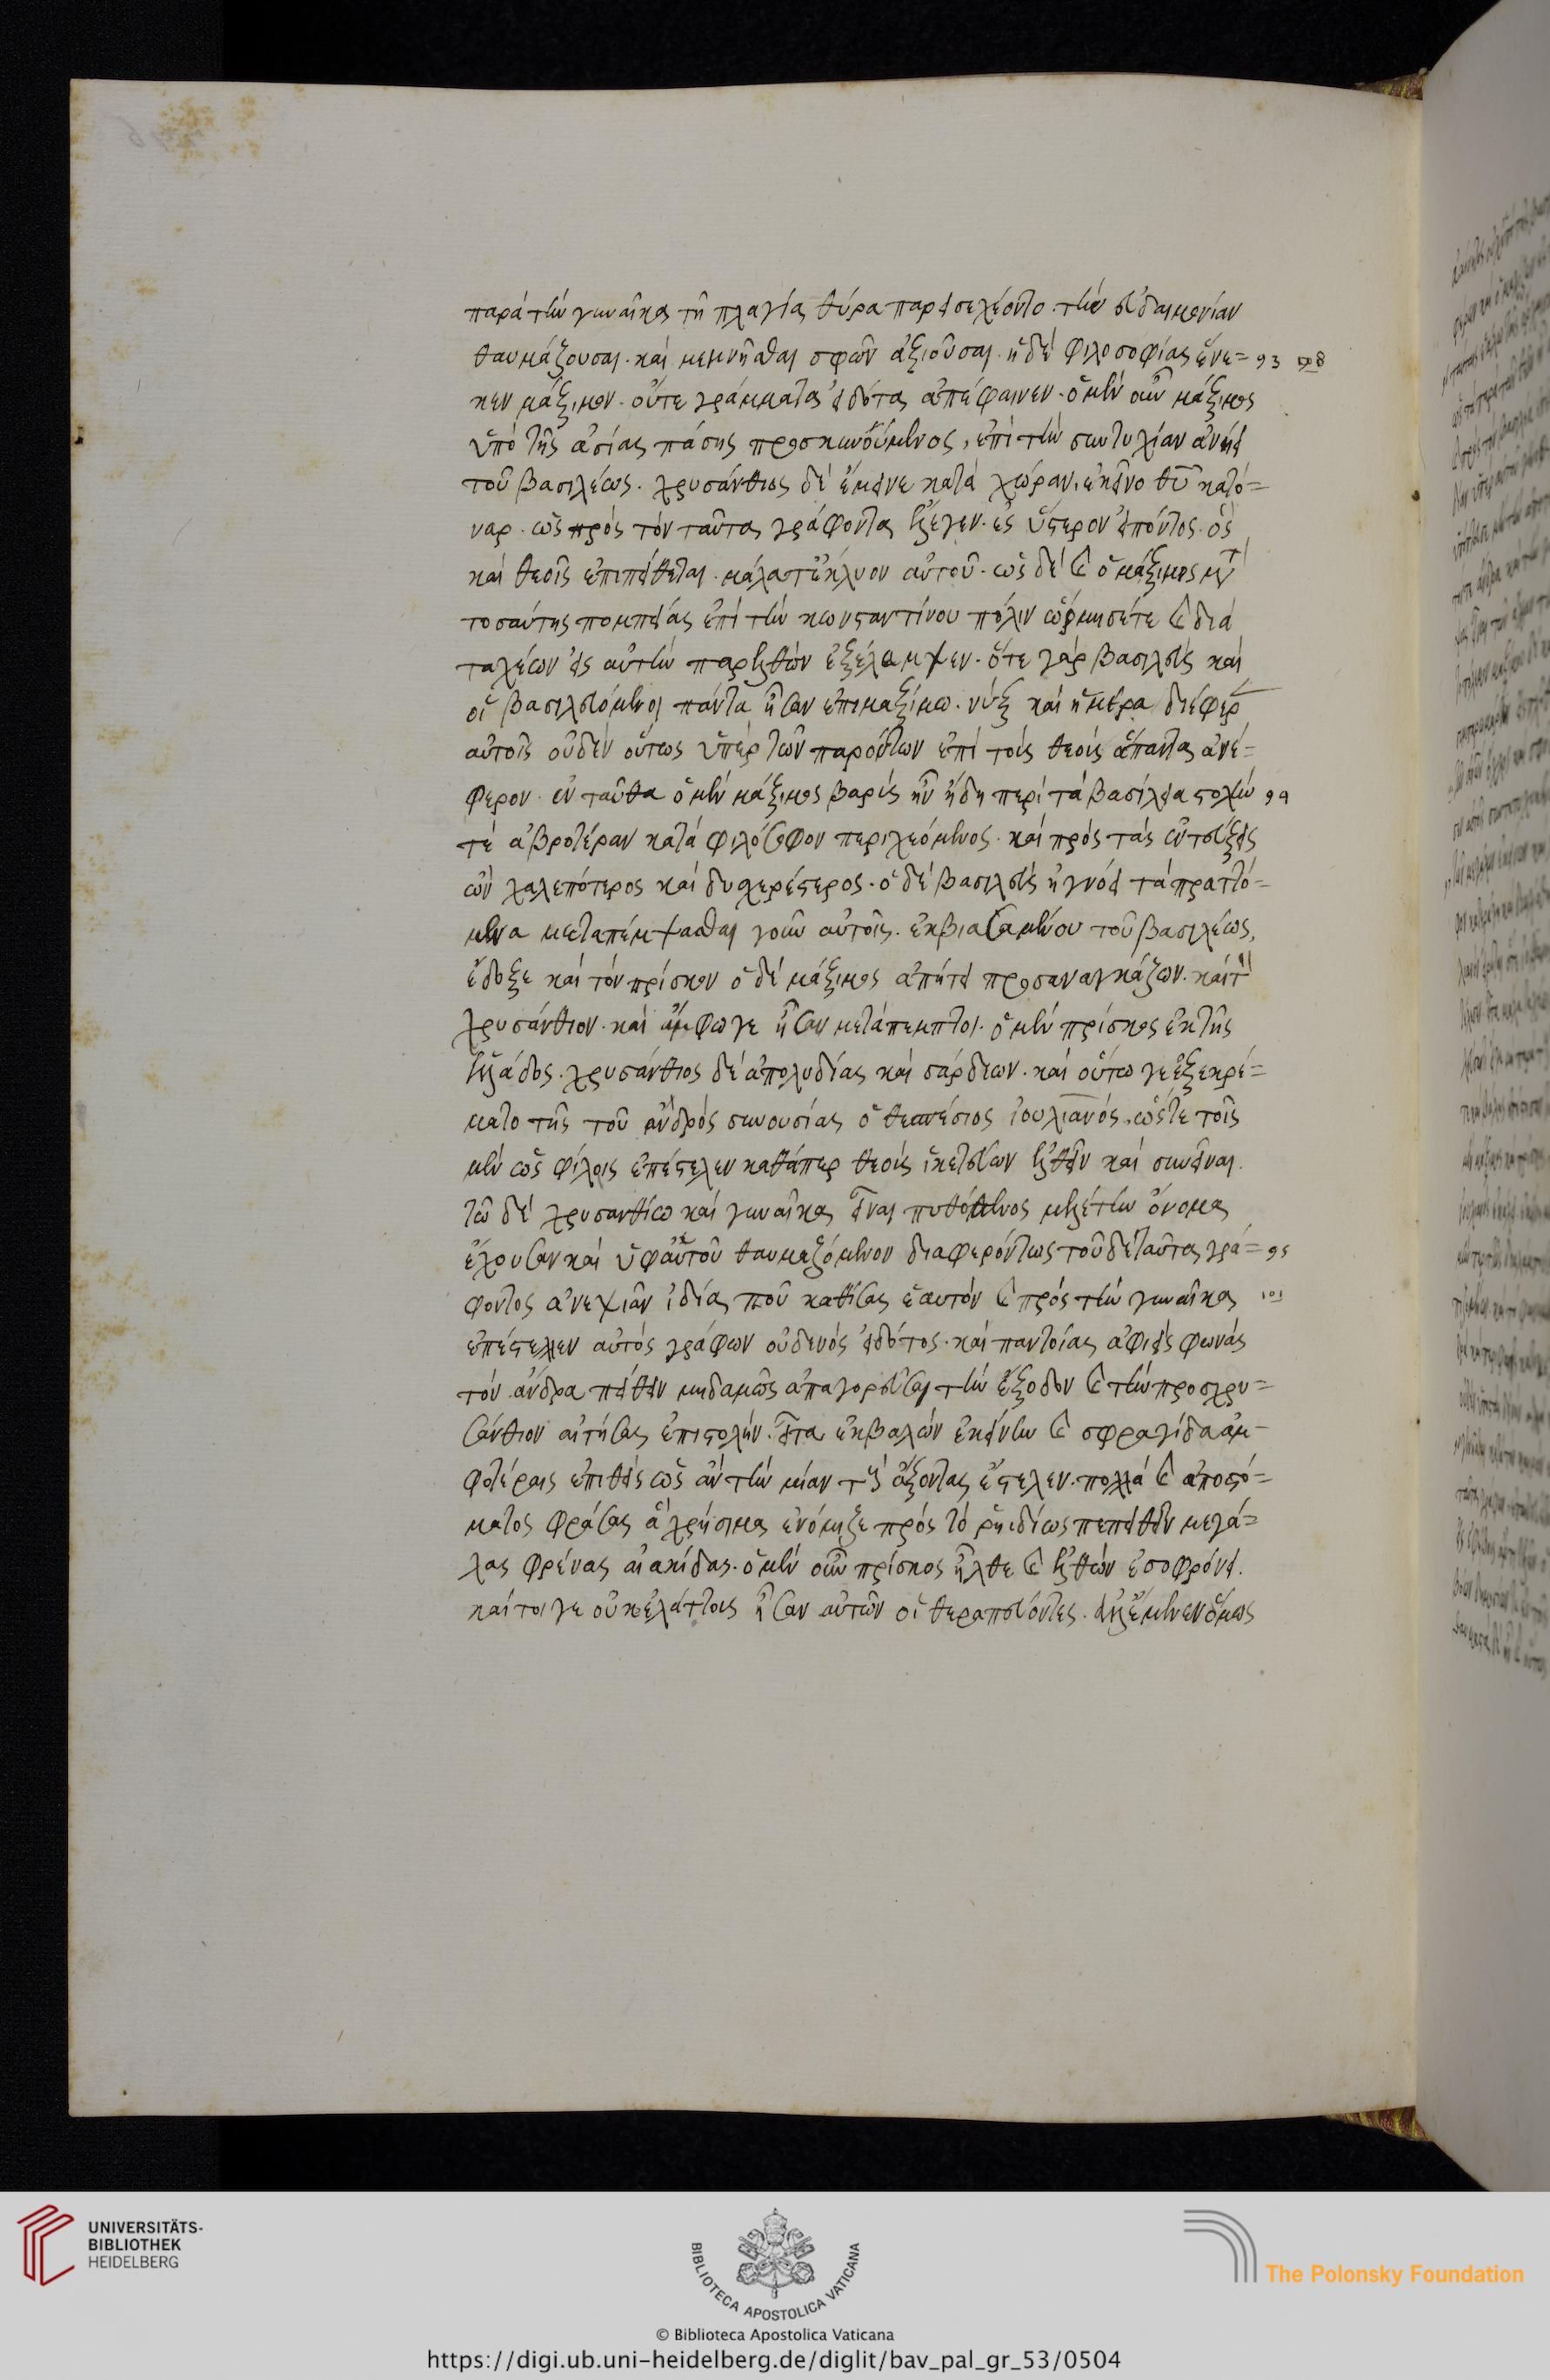 παρὰ τὴν γυναῖκα τῇ πλαγίᾳ θύρᾳ παρεισεχέοντο. τὴν εὐδαιμονίαν
θαυμάζουσαι. καὶ μεμνῆσθαι σφῶν ἀξιοῦσαι. ἡ δὲ φιλοσοφίας ἕνε= 93
κεν μάξιμον. οὔτε γράμματα εἰδότα ἀπέφαινεν. ὁ μὲν οὖν μάξιμος
ὑπὸ τῆς ἀσίας πάσης προσκυνούμενος, ἐπὶ τὴν συντυχίαν ἀνῄει
τοῦ βασιλέως. χρυσάνθιος δὲ ἔμεινε κατὰ χώραν, ἐκεῖνο θυ κατό=
ναρ. ὡς πρὸς τὸν ταῦτα γράφοντα ἔλεγεν. ἐς ὕστερον εἰπόντος. ὃς
καὶ θεοῖς ἐπιπείθεται. μάλα τ' ἔκλυον αὐτοῦ. ὡς δὲ καὶ ὁ μάξιμος μετὰ
τοσαύτης πομπείας ἐπὶ τὴν κωνσταντίνου πόλιν ὥρμησέ τε καὶ διὰ
ταχέων εἰς αὐτὴν παρελθὼν ἐξέλαμψεν. ὅτε γὰρ βασιλεὺς καὶ
οἱ βασιλευόμενοι πάντα ἦσαν ἐπὶ μαξίμῳ. νὺξ καὶ ἡμέρα διέφερεν
αὐτοῖς οὐδὲν οὕτως ὑπὲρ τῶν παρόντων ἐπὶ τοὺς θεοὺς ἅπαντα ἀνέ=
φερον. ἐνταῦθα ὁ μὲν μάξιμος βαρὺς ἦν ἤδη περὶ τὰ βασίλεια στολήν 94
τε ἁβροτέραν κατὰ φιλόσοφον περιχεόμενος. καὶ πρὸς τὰς ἐντεύξεις
ὢν χαλεπώτερος καὶ δυσχερέστερος. ὁ δὲ βασιλεὺς ἠγνόει τὰ πραττό=
μενα μεταπέμψασθαι γοῦν αὐτοῖς. ἐκβιασαμένου τοῦ βασιλέως,
ἔδοξε καὶ τὸν πρίσκον ὁ δὲ μάξιμος ἀπῄτει προσαναγκάζων. καὶ τὸν
χρυσάνθιον. καὶ ἄμφω γε ἦσαν μετάπεμπτοι. ὁ μὲν πρίσκος ἐκ τῆς
ἑλλάδος. χρυσάνθιος δὲ ἀπὸ λυδίας καὶ σάρδεων. καὶ οὕτω γε ἐξεκρέ=
ματο τῆς τοῦ ἀνδρὸς συνουσίας ὁ θεσπέσιος ἰουλιανός. ὥστε τοῖς
μὲν ὡς φίλοις ἐπέστελλεν καθάπερ θεοὺς ἱκετεύων ἐλθεῖν καὶ συνεῖναι.
τῷ δὲ χρυσανθίῳ καὶ γυναῖκα εἶναι πυθόμενος μελίτην ὄνομα
ἔχουσαν καὶ ὑφ' αὑτοῦ θαυμαζόμενον διαφερόντως τοῦ δὲ ταῦτα γρά= 95
φοντος ἀνεψιὰν ἰδίᾳ που καθίσας ἑαυτὸν καὶ πρὸς τὴν γυναῖκα 101
ἐπέστελλεν αὐτὸς γράφων οὐδενὸς εἰδότος. καὶ παντοίας ἀφιεὶς φωνὰς
τὸν ἄνδρα πείθειν μηδαμῶς ἀπαγορεῦσαι τὴν ἔξοδον καὶ τὴν προσχρυ=
σάνθιον αἰτήσας ἐπιστολήν. εἶτα ἐκβαλὼν ἐκείνην καὶ σφραγῖδα ἀμ=
φοτέραις ἐπιθεὶς ὡς ἂν τὴν μίαν τοὺς ἄξοντας ἔστελλεν. πολλὰ καὶ ἀποστό=
ματος φράσας ἃ χρήσιμα ἐνόμιζε πρὸς τὸ ῥηιδίως πεπιθεῖν μεγά=
λας φρένας αἰακίδαο. ὁ μὲν οὖν πρίσκος ἦλθε καὶ ἐλθὼν ἐσωφρόνει.
καίτοι γε οὐκ ἐλάττους ἦσαν αὐτῶν οἱ θεραπεύοντες. ἀλλ' ἔμενεν ὅμως
UNIVERSITÄTS-
BIBLIOTHEK
HEIDELBERG
BIBLIOTECA APOSTOLICA VATICANA
The Polonsky Foundation
© Biblioteca Apostolica Vaticana
https://digi.ub.uni-heidelberg.de/diglit/bav_pal_gr_53/0504